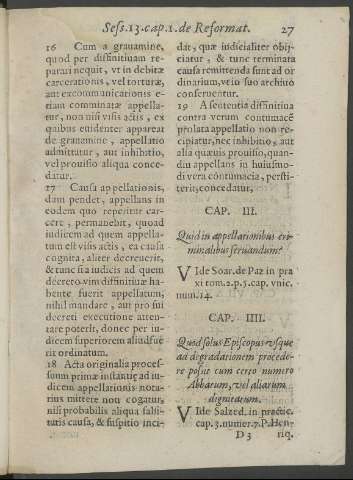 Sess.13.cap.1.de Reformat. 27
16 Cum a grauamine,
quod per diffinituam re-
parari nequit, vt in debitæ
carcerationis, vel torturæ,
aut excommunicationis e-
tiam comminatæ appella-
tur, non nisi visis actis, ex
quibus euidenter appareat
de grauamine, appellatio
admittutur, aut inhibitio,
vel prouisio aliqua conce-
datur.
17 Causa appellationis,
dum pendet, appellans in
eodem quo reperitur car-
cere, permanebit, quoad
iudicem ad quem appella-
tum est visis actis, ea causa
cognita, aliter decreuerit,
& tunc si a iudicis ad quem
decreto vim diffinitiuæ ha-
bente fuerit appellatum,
nihil mandare, aut pro sui
decreti executione atten-
tare poterit, donec per iu-
dicem superiorem aliud fue
rit ordinatum.
18 Acta originalia proces-
suum primæ instantiæ ad iu-
dicem appellationis nota-
rius mittere non cogatur,
nisi probabilis aliqua falsi-
tatis causa, & suspitio inci-
dat, quæ iudicialiter obij-
ciatur, & tunc terminata
causa remittenda sunt ad or
dinarium, vt in suo archiuo
conseruentur.
19 A sententia diffinitiua
contra verum contumacē
prolata appellatio non re-
cipiatur, nec inhibitio, aut
alia quæuis prouisio, quan-
diu appellans in huiusmo-
di vera contumacia, persti-
terit, concedatur.
CAP. III.
Quid in appellationibus cri-
minalibus seruandum?
VIde Soar. de Paz in pra
xi tom.2.p.5.cap.vnic.
num.14.
CAP. IIII.
Quod solus Episcopus vsque
ad degradationem procede-
re possit cum certo numero
Abbatum, vel aliarum
dignitatum.
VIde Salzed. in practic.
cap.3.numer.7.P.Hen-
D 3 riq.